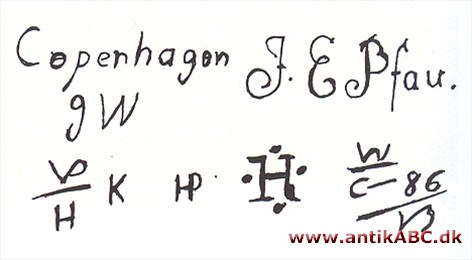 Copenhagen J. E Pfau.
9 W
H K HP H W
C-86
www.antikABC.dk